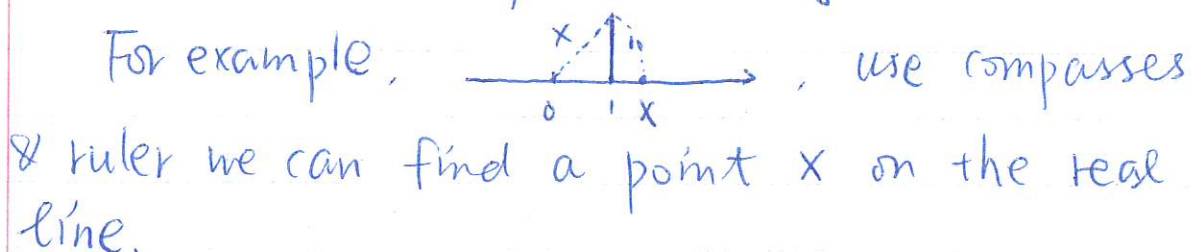 For example, , use compasses
x
0 1 x
& ruler we can find a point x on the real
line.